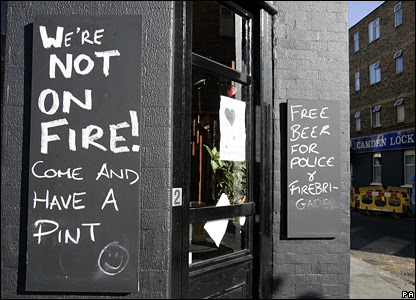 WE'RE
NOT
ON
FIRE!
COME AND
HAVE A
PINT
2
FREE
BEER
FOR
POLICE
&
FIREBRI-
GADE
CAMDEN LOCK
PA